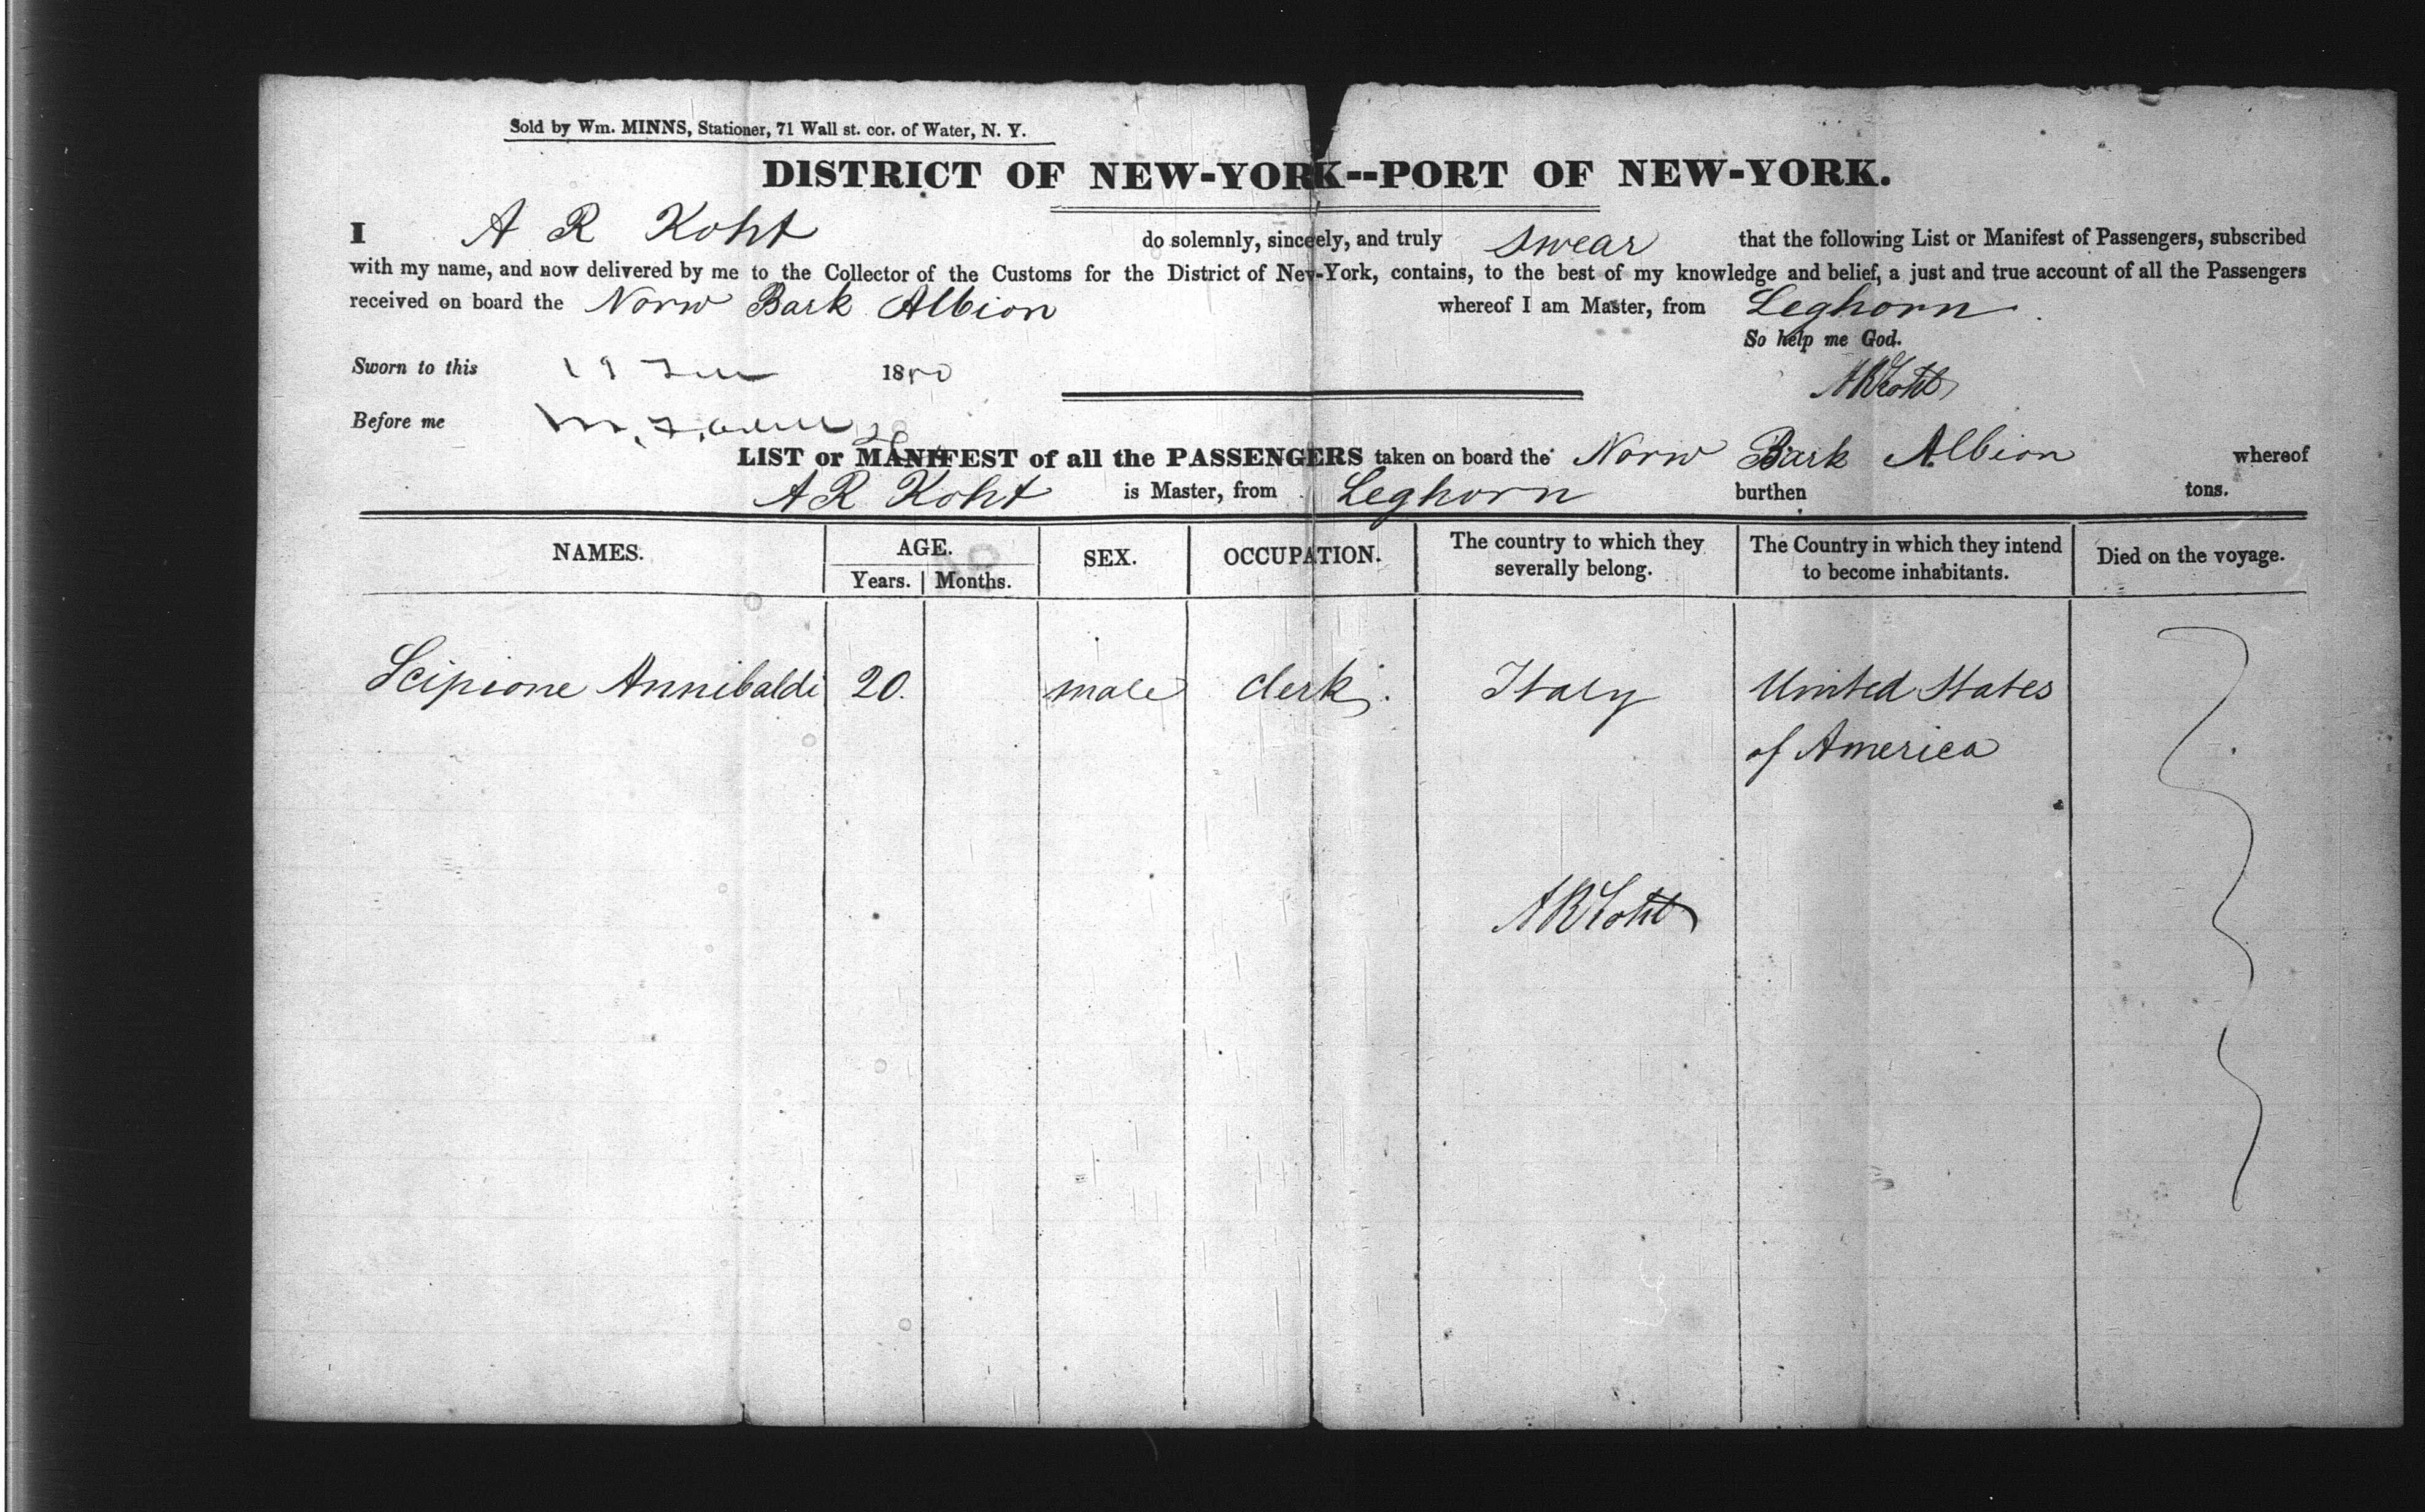 Sold by Wm. MINNS, Stationer, 71 Wall st. cor. of Water, N. Y.
DISTRICT OF NEW-YORK--PORT OF NEW-YORK.
I A R Koht do solemnly, sincerely, and truly swear that the following List or Manifest of Passengers, subscribed
with my name, and now delivered by me to the Collector of the Customs for the District of New-York, contains, to the best of my knowledge and belief, a just and true account of all the Passengers
received on board the Norw Bark Albion whereof I am Master, from Leghorn
So help me God.
Sworn to this 19 18
A R Koht
Before me
LIST or MANIFEST of all the PASSENGERS taken on board the Norw Bark Albion whereof
A R Koht is Master, from Leghorn burthen tons.
NAMES. AGE. SEX. OCCUPATION. The country to which they severally belong. The Country in which they intend to become inhabitants. Died on the voyage.
Years. Months.
Scipione Annibaldi 20. male clerk. Italy United States
of America
A R Koht